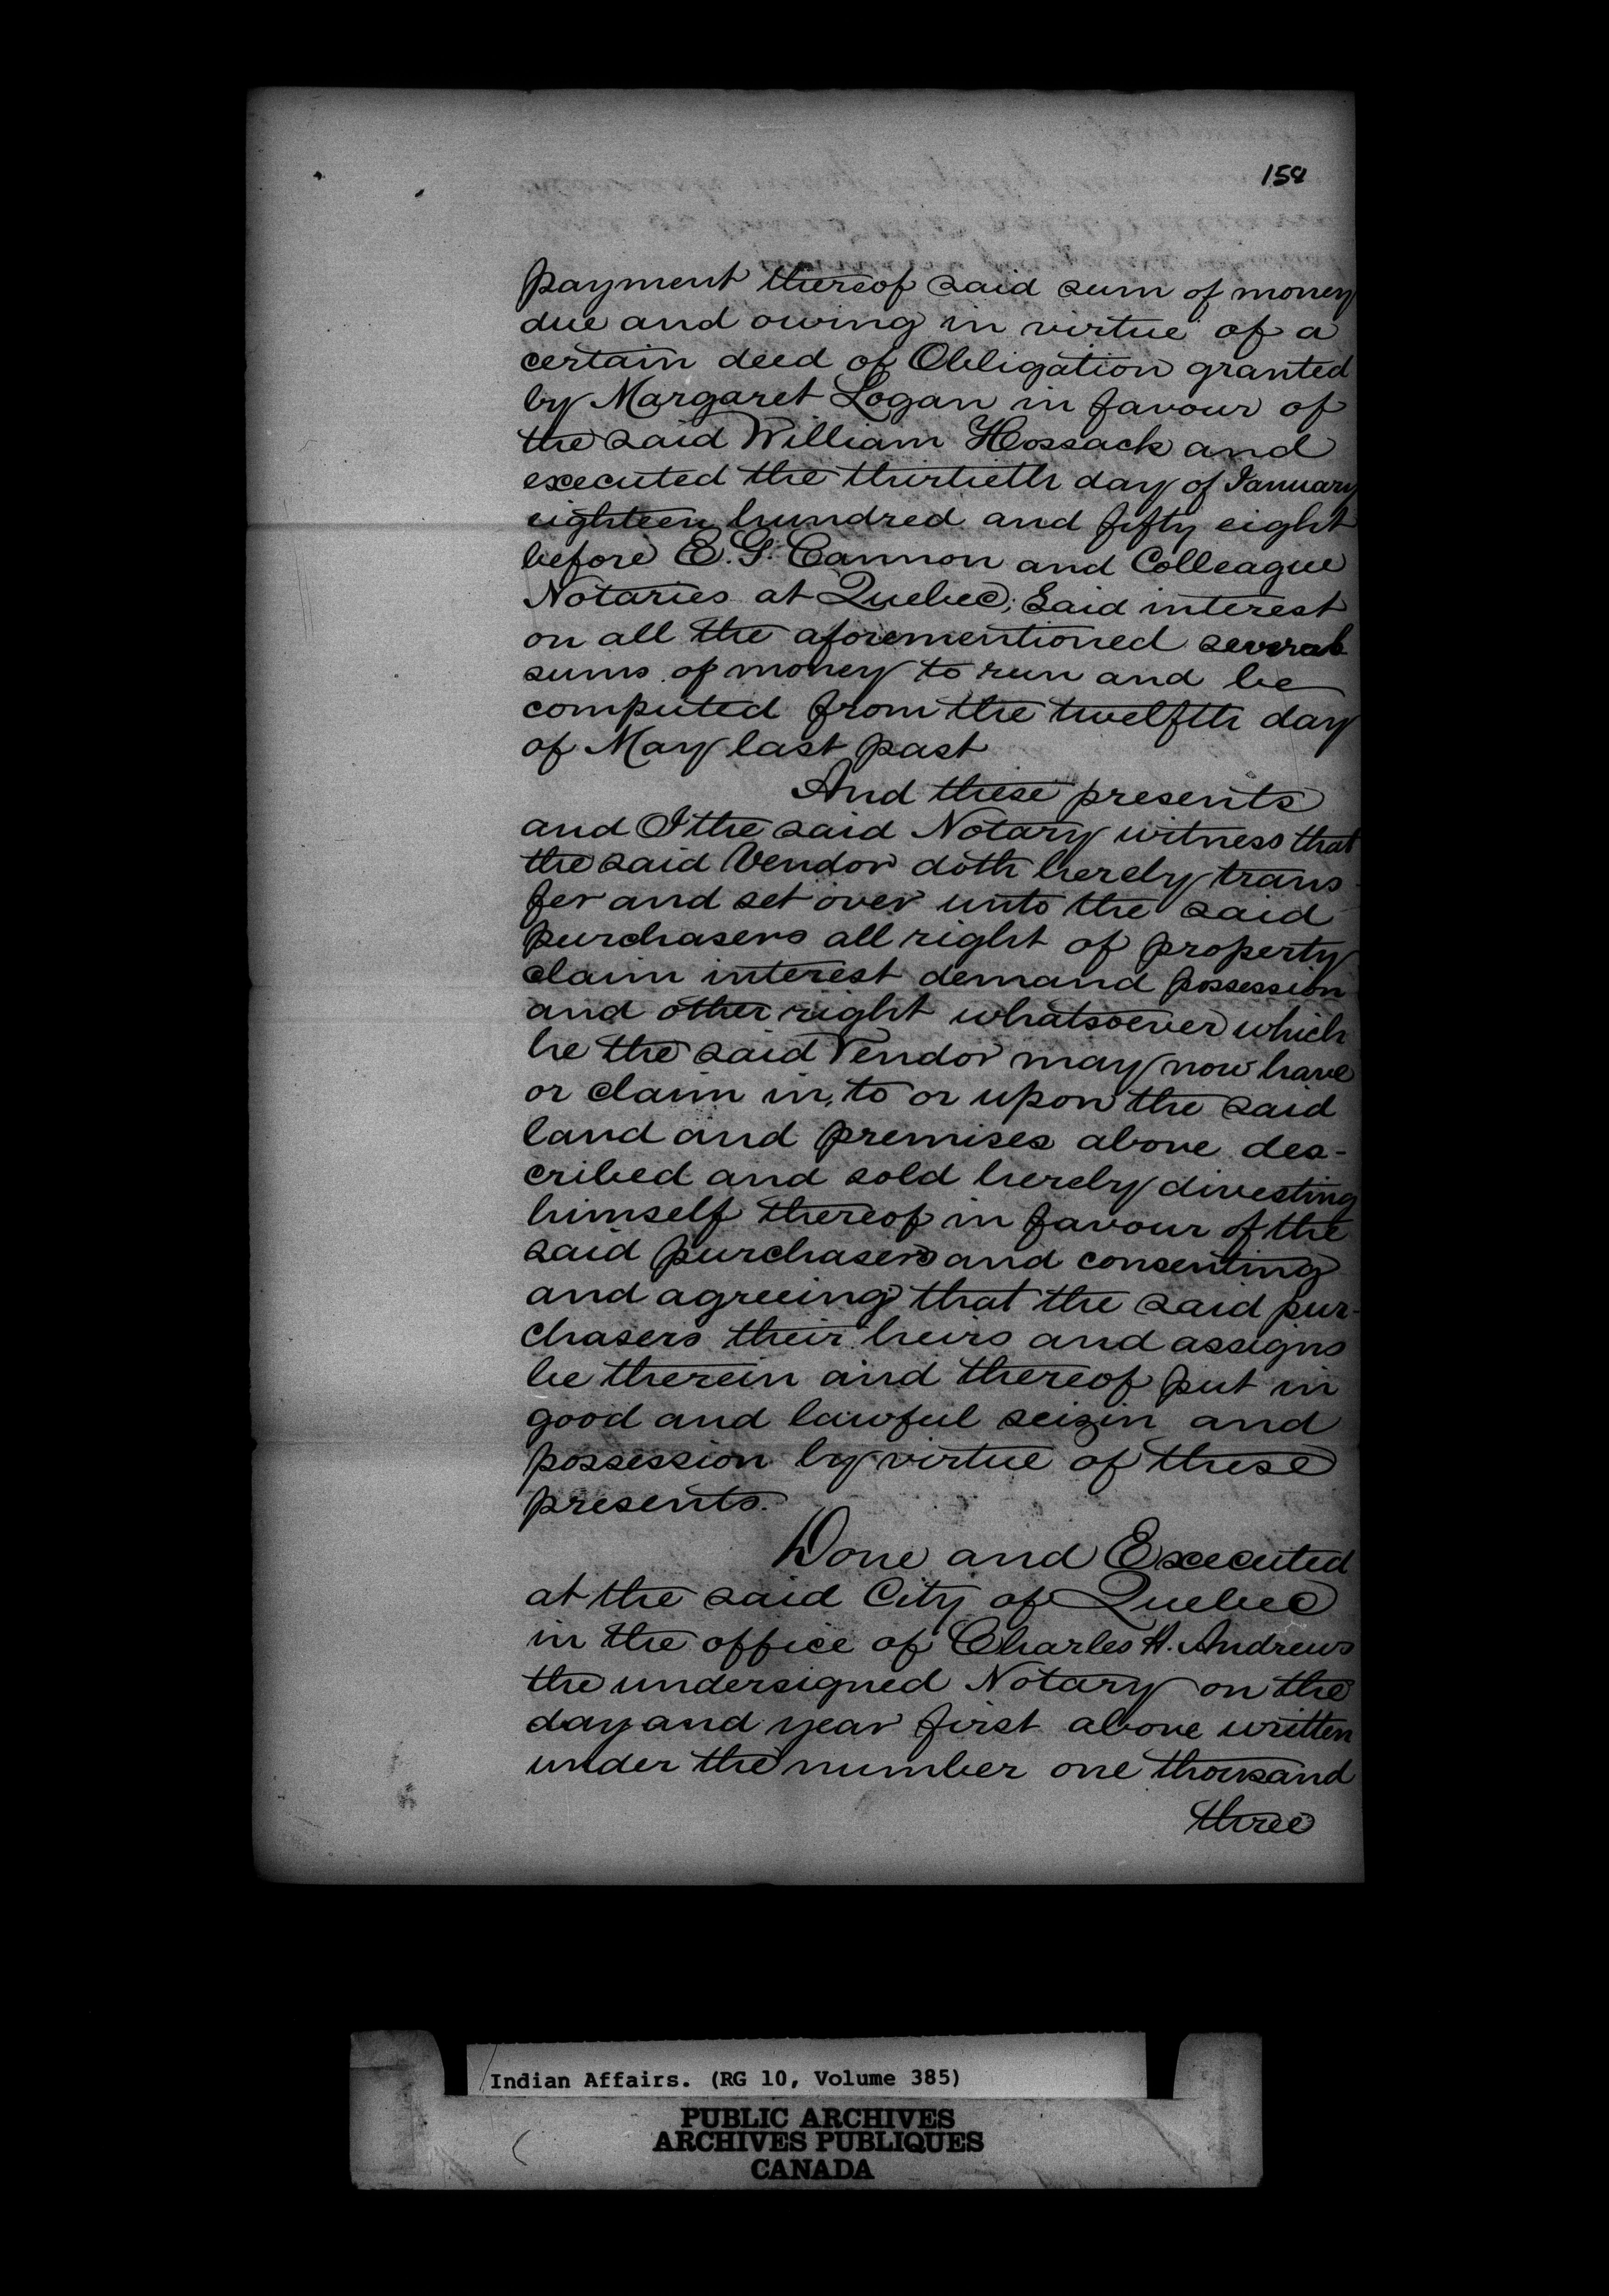 158
payment thereof said sum of money
due and owing in virtue of a
certain deed of Obligation granted
by Margaret Logan in favour of
the said William Hossack and
executed the thirtieth day of January
eighteen hundred and fifty eight
before E. G. Cannon and Colleague
Notaries at Quebec; Said interest
on all the aforementioned several
sums of money to run and be
computed from the twelfth day
of May last past
And these presents
and I the said Notary witness that
the said Vendor doth hereby trans
fer and set over unto the said
purchasers all right of property
claim interest demand possession
and other right whatsoever which
he the said Vendor may now have
or claim in, to or upon the said
land and premises above des-
cribed and sold hereby divesting
himself thereof in favour of the
said purchasers and consenting
and agreeing that the said pur-
chasers their heirs and assigns
be therein and thereof put in
good and lawful seizin and
possession by virtue of these
presents.
Done and Executed
at the said City of Quebec
in the office of Charles A. Andrews
the undersigned Notary on the
day and year first above written
under the number one thousand
three
Indian Affairs. (RG 10, Volume 385)
PUBLIC ARCHIVES
ARCHIVES PUBLIQUES
CANADA